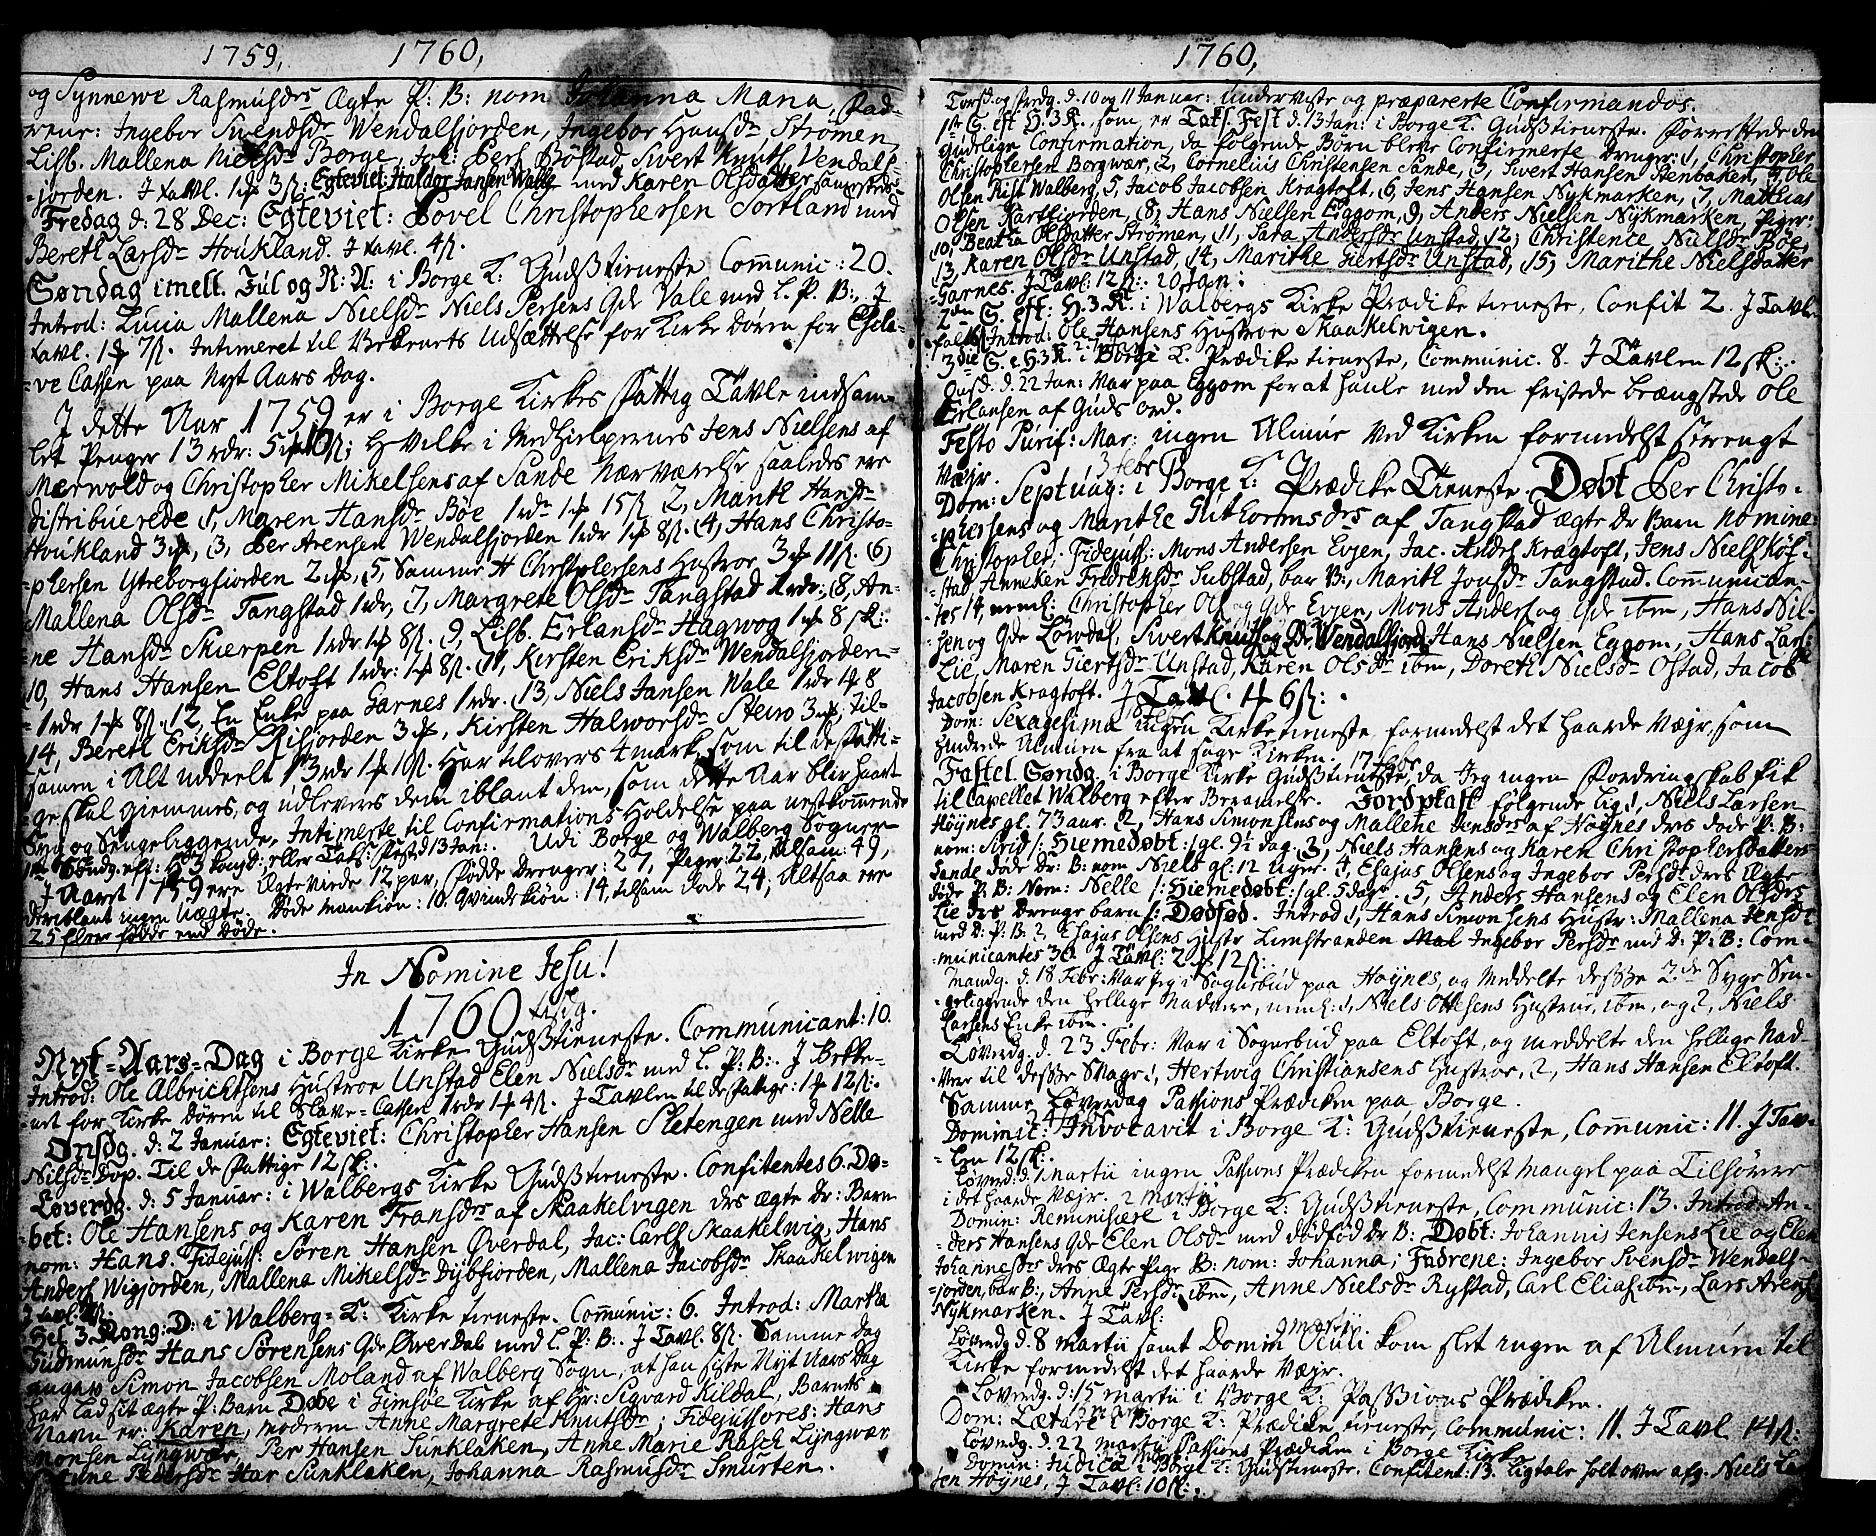 1759, 1760,
og Synnewe Rasmusdr Ægte P: B: nom Johanna Maria, Fad-
rene: Ingebor Swendsdr Wendalfjorden, Ingebor Hansdr Strömen
Lisb. Mallena Nielsdr Borge, Jac: Pers Böstad, Swert Knuts, Vendals-
-jorden. J tavl. 1 3ß: Egteviet: Haldor Jansen Walle med Karen Olsdatter
Fredag d: 28 Dec: Egteviet: Povel Christophersen Sortland med
Bereth Larsdr Houkland. J tavl. 4ß.
Søndag imell. Jul og N: A: i Borge K: Gudstieneste. Communic: 20.
Introd: Lucia Mallena Nielsdr Niels Persens Qde Vale med L. P. B:, J
tavl. 1 7ß. Intimeret til Bekenets Udsættelse for Kirke Dören for Sla-
-ve Cassen paa Nyt Aars Dag.
J dette Aar 1759 er i Borge Kirkes Fattig Tavle indsam-
let Penger 13 rdr: 5 10ß; Hvilke i Medhielpernes Jens Nielsens af
Mærwold og Christopher Mikelsens af Sande Nærværelse saaledes ere
distribuerede 1, Maren Hansdr Böe 1rdr 15ß 2, Marith Hansdr
Houkland 3, (3, Per Arensen Wendalfjorden 1rdr 1 8ß. (4, Hans Christo-
-phersen Ytreborgfiorden 2, (5, Samme H Christophersens Hustroe 3 11ß (6)
Mallena Olsdr Tangstad 1rdr, 7, Margrete Olsdr Tangstad 1rdr: (8, An-
-ne Hansdr Skierpen 1rdr 1 8ß. (9, Lisb. Erlansdr Hagwog 1 8 sk:
10, Hans Hansen Eltoft 1rdr: 1 8ß. (11, Kirsten Eriksdr Wendalfjorden
1rdr 1 8ß. 12, En Enke paa Garnes 1rdr. (13, Niels Jansen Wale 1rdr 1 8
14, Bereth Eriksdr Risfjorden 3, Kirsten Halworsdr Steiro 3, til-
samen i Alt uddeelt 13 rdr 1 10ß. Har tilovers 4 mark, som til de Fatti-
-ge skal giemmes, og udlevers dem iblant dem, som dette Aar blir haart
Syg og Sengeliggende, Intimerte til Confirmations Holdelse paa nestkommende
1te Søndg. eft: H 3 Kongd: eller Taks. Fest d 13 Jan:. Udi Borge og Walberg Sogner
J Aaret 1759 ere Ægteviede 12 par, Födde Drenger: 27, Piger: 22, tilsam: 49,
deriblant ingen Uægte. Döde mankiön: 10. Qvindekiön: 14, tilsam döde 24, Altsaa ere
25 flere födde end döde.
In Nomine Jesu!
1760
Nyt-Aars-Dag i Borge Kirke Gudstieneste. Communicant: 10.
Introd: Ole Albrichtsens Hustroe Unstad Elen Nielsdr med L. P: B:. J Bekke-
-net for Kirke Dören til Slave-Cassen 1rdr 1 4ß. J Tavlen til de Fattige: 1 12ß.
Onsdg. d: 2 Januar: Egteviet: Christopher Hansen Sletengen med Nelle
Nilsdr Dop. Til de Fattige 12 sk:.
Löverdg. d: 5 Januar: i Walbergs Kirke Gudstieneste. Confitentes 6. Dö-
-bet: Ole Hansens og Karen Fransdrs af Skaakelvigen des Ægte Dr: Barn
nom: Hans. Fidejuss: Sören Hansen Øverdal, Jac: Carls Skaakelwig, Hans
Anders Wigjorden, Mallena Mikelsdr Dybfjorden, Mallena Jacobsdr Skaakelwigen
J tavl
Hel 3 Kong: D: i Walberg-K: Kirke tieneste. Communic: 6. Introd: Marta
Gudmunsdr Hans Sörensens Qde Øverdal med L. P. B:. J Tavl. 8ß. Samme Dag
angav Simon Jacobsen Moland af Walberg Sogn, at han siste Nyt Aars Dag
har lad sit ægte P: Barn Döbe i Gimsöe Kirke af Hr: Sigvard Kildal, Barnets
Navn er: Karen, moderen Anne Margrete Knutsdr; Fidejussores: Hans
Monsen Lyngwær, Per Hansen Sunklaken, Anne Marie Rasch Lyngwær
Anne Pedersdr Har Sunklaken, Johanna Rasmusdr Smorten.
1760,
Torsd. og Fredg. d. 10 og 11 Januar: Underviste og præparerte Confirmandos.
1te S. eft H. 3 K. som er Taks. Fest d 13 Jan: i Borge K. Gudstieneste. Forrettede den
Gudelige Confirmation, da følgende Börn bleve Confirmerte Drenger: 1, Christopher
Christophersen Borgwær, 2, Cornelius Christensen Sande, 3, Swert Hansen Stenbaken, 4, Ole
Olsen Rist Walberg, 5, Jacob Jacobsen Kragtoft, (6, Jens Hansen Nykmarken, (7, Matthias
Olsen Kartfjorden, (8, Hans Nielsen Eggom, 9, Anders Nielsen Nykmarken, Piger:
10, Beatia Olsdatter Strömen, 11, Sara Andersdr Unstad, 12, Christence Nielsdr Böe,
13, Karen Olsdr Unstad, 14, Marithe Giertsdr Unstad, 15, Marithe Nielsdatter
-Garnes. J Tavl: 12ß:. 20 Jan:
2den S. eft: H. 3 K: i Walbergs Kirke Prædike tieneste, Confit 2. J Tavlen
Introd: Ole Hansens Hustroe Skaakelwigen.
3die S. e H. 3 K. i Borge K. Prædike tieneste, Communic. 8. J Tavlen 12 sk:.
Onsd. d. 22 Jan: Var paa Eggom for at handle med den fristede beængstede Ole
Erlansen af Guds ord.
Festo Purif: Mar: ingen Almue ved Kirken formedelst strengt
Vejr. 3 Febr
Dom: Septuag: i Borge K: Prædike Tieneste. Döbt Per Christo-
-phersens og Marithe Guthormsdrs af Tangstad ægte Dr Barn nomine
Christopher, Fidejuss: Mons Andersen Evjen, Jac. Andrs Kragtoft, Jens Niels Köf-
-stad, Anneken Fredrensdr Substad, bar B:, Marith Jonsdr Tangstad. Communican-
tes 14 neml: Christopher Ols og Qde Evjen, Mons Anders og Qde ibm, Hans Nil-
-sen og Qde Lövdal, Swert Knuts og Dr Wendalfjord, Hans Nielsen Eggom, Hans Lars:
Lie, Maren Giertsdr Unstad, Karen Olsdr ibm, Doreth Nielsdr Ostad, Jacob
Jacobsen Kragtoft. J Tavl. 1 6ß:.
Dom: Sexagesima ingen Kirke tieneste formedelst det haarde Vejr, som
hindrede Almuen fra at søge Kirken. 17 Febr
Fastel. Søndg. i Borge Kirke Gudstieneste, da Jeg ingen Fordringskab fik
til Capellet Walberg efter Berammelse. Jordpkast følgende lig: 1, Niels Larsen
Höynes gl. 73 aar. 2, Hans Simonsens og Mallene Jensdrs af Höynes deres döde P: B:
nom: Sirid /: Hiemedöbt: / gl. 9 1/2 dag. 3, Niels Hansens og Karen Christophersdatters
Sande döde Dr: B: nom Niels gl: 12 Uger. 4, Elajas Olsens og Ingebor Persdrs deres Ægte
döde P. B: Nom: Nelle /: Hiemedöbt: / gl. 5 dage. 5, Anders Hansens og Elen Olsdrs
Lie des Drenge barn /: Dödföd. Introd 1, Hans Simonsens Hustr: Mallena Jensdr
med D: P: B: 2, Elajas Olsens Hustr Limstranden Mal Ingebor Persdr med D: P: B: Com-
municantes 30. J Tavl: 2 12ß:.
Mandg. d. 18 Febr: Var Jeg i Sognebud paa Höynes, og meddelte disse 2de Syge Sen-
-geliggende den hellige Nadvere, neml: 1, Niels Ottesens Hustrue, ibm, og 2, Niels
Larsens Enke ibm.
Löverdg. d. 23 Febr: Var i Sognebud paa Eltoft, og meddelte den hellige Nad-
-vere til disse Svage 1, Hertwig Christiansens Hustroe, 2, Hans Hansen Eltoft.
Samme Löverdag Passions Prædiken paa Borge.
24
Dominic: Invocavit i Borge K: Gudstieneste, Communic: 11. J Tav-
-len 12 sk:.
Löverd: d. 1 martii ingen Passions Prædiken formedelst mangel paa Tilhörere
i det haarde Vejr. 2 martii
Domin: Reminiscere i Borge K: Gudstieneste, Communic: 13. Introd: An-
-ders Hansens Qde Elen Olsdr med dödföd Dr B: Döbt: Johannis Jensens Lie og Elen
Johannesdrs ders Ægte Pige B: nom: Johanna; Fadrene: Ingebor Svensdr Wendals-
-jorden, bar B:, Anne Persdr ibm, Anne Nielsdr Rystad, Carl Elias ibm, Lars Arens
Nykmarken. J Tavl:
9 martii
Löverdg d. 8 martii samt Domin Oculi kom slet ingen af Almuen til
Kirke formedelst det haarde Vejr.
Löverdg. d: 15 martii i Borge K: Passions Prædiken.
Dom: Lætare i Borge K: Prædike tieneste, Communic: 11. J Tavl 14ß:
Löverdg. d. 22 martii Passions Prædiken i Borge Kirke
Domin: Judica i Borge K: Gudstieneste. Confitent: 13. Ligtale holt over afg. Niels Lar-
sen Höynes, J Tavl: 10ß:.